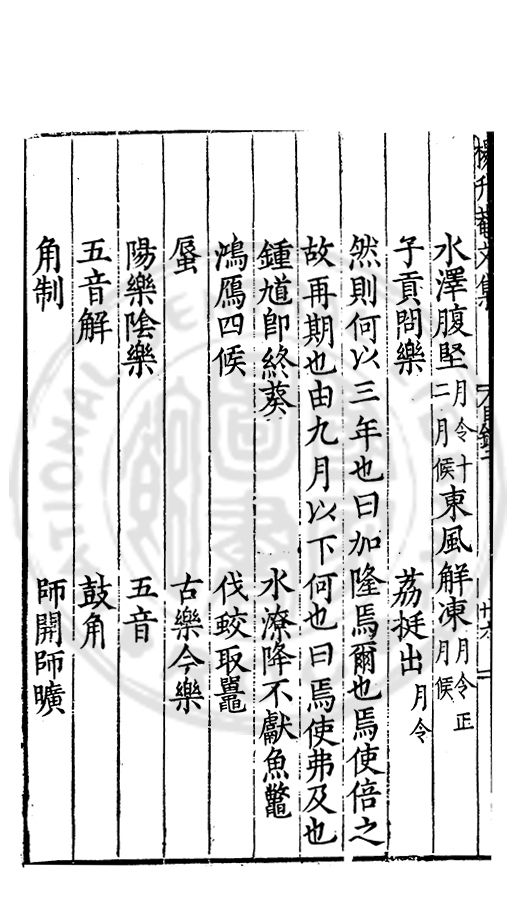 楊升菴文集 大目錄 廿六
水澤腹堅月令十二月候東風解凍月令正月候
子貢問樂 荔挺出月令
然則何以三年也曰加隆焉爾也焉使倍之
故再期也由九月以下何也曰焉使弗及也
鍾馗卽終葵 水潦降不獻魚鼈
鴻鴈四候 伐蛟取鼉
蜃 古樂今樂
陽樂陰樂 五音
五音解 鼓角
角制 師開師曠